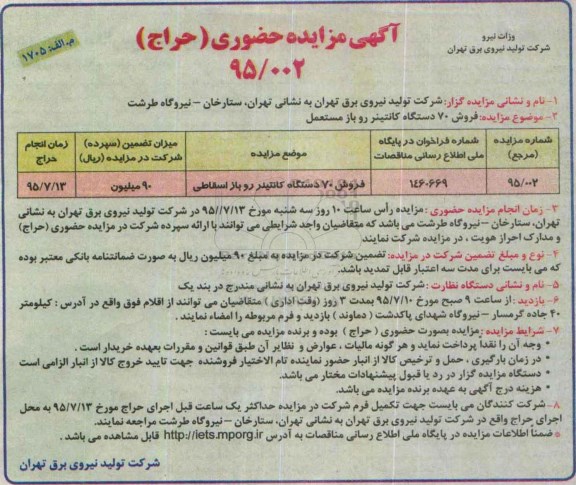 وزات نیرو
شرکت تولید نیروی برق تهران
آگهی مزایده حضوری (حراج)
۹۵/۰۰۲
م.الف: ۱۷۰۵
۱-نام و نشانی مزایده گزار: شرکت تولید نیروی برق تهران به نشانی تهران، ستارخان – نیروگاه طرشت
۲-موضوع مزایده: فروش ۷۰ دستگاه کانتینر رو باز مستعمل
شماره مزایده (مرجع) شماره فراخوان در پایگاه ملی اطلاع رسانی مناقصات موضع مزایده میزان تضمین (سپرده) شرکت در مزایده (ریال) زمان انجام حراج
۹۵/۰۰۲ ۱۴۶۰۶۶۹ فروش ۷۰ دستگاه کانتینر رو باز اسقاطی ۹۰ میلیون ۹۵/۷/۱۳
۳- زمان انجام مزایده حضوری : مزایده رأس ساعت ۱۰ روز سه شنبه مورخ ۹۵//۷/۱۳ در شرکت تولید نیروی برق تهران به نشانی
تهران، ستارخان –نیروگاه طرشت می باشد که متقاضیان واجد شرایطی می توانند با ارائه سپرده شرکت در مزایده حضوری (حراج)
و مدارک احراز هویت ، در مزایده شرکت نمایند
۴- نوع و مبلغ تضمین شرکت در مزایده: تضمین شرکت در مزایده به مبلغ ۹۰ میلیون ریال به صورت ضمانتنامه بانکی معتبر بوده
که می بایست برای مدت سه اعتبار قابل تمدید باشد.
۵- نام و نشانی دستگاه نظارت : شرکت تولید نیروی برق تهران به نشانی مندرج در بند یک
۶- بازدید : از ساعت ۹ صبح مورخ ۹۵/۷/۱۰ بمدت ۳ روز (وقت اداری) متقاضیان می توانند از اقلام فوق واقع در آدرس : کیلومتر
۴۰ جاده گرمسار – نیروگاه شهدای پاکدشت ( دماوند ) بازدید و فرم مربوطه را امضاء نمایند .
۷- شرایط مزایده : مزایده بصورت حضوری ( حراج ) بوده و برنده مزایده می بایست :
• وجه آن را نقداً پرداخت نماید و هر گونه مالیات ، عوارض و نظایر آن طبق قوانین و مقررات بعهده خریدار است .
• در زمان بارگیری ، حمل و ترخیص کالا از انبار حضور نماینده تام الاختیار فروشنده جهت تایید خروج کالا از انبار الزامی است
• دستگاه مزایده گزار در رد یا قبول پیشنهادات مختار می باشد.
• هزینه درج آگهی به عهده برنده مزایده می باشد.
۸- شرکت کنندگان می بایست جهت تکمیل فرم شرکت در مزایده حداکثر یک ساعت قبل اجرای حراج مورخ ۹۵/۷/۱۳ به محل
اجرای حراج واقع در شرکت تولید نیروی برق تهران به نشانی تهران، ستارخان – نیروگاه طرشت مراجعه نمایند.
• ضمناً اطلاعات مزایده در پایگاه ملی اطلاع رسانی مناقصات به آدرس http://iets.mporg.ir قابل مشاهده می باشد .
شرکت تولید نیروی برق تهران